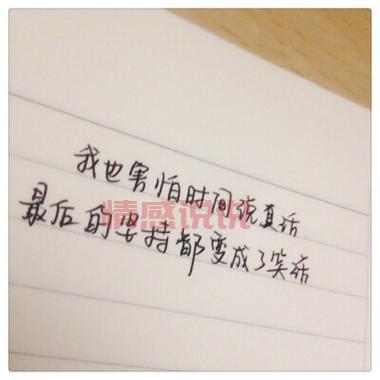 我也害怕时间说真话
最后的坚持都变成了笑话
情感说说